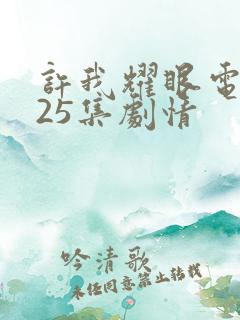 許我耀眼電
25集劇情
吟清歌
未经同意禁止转载